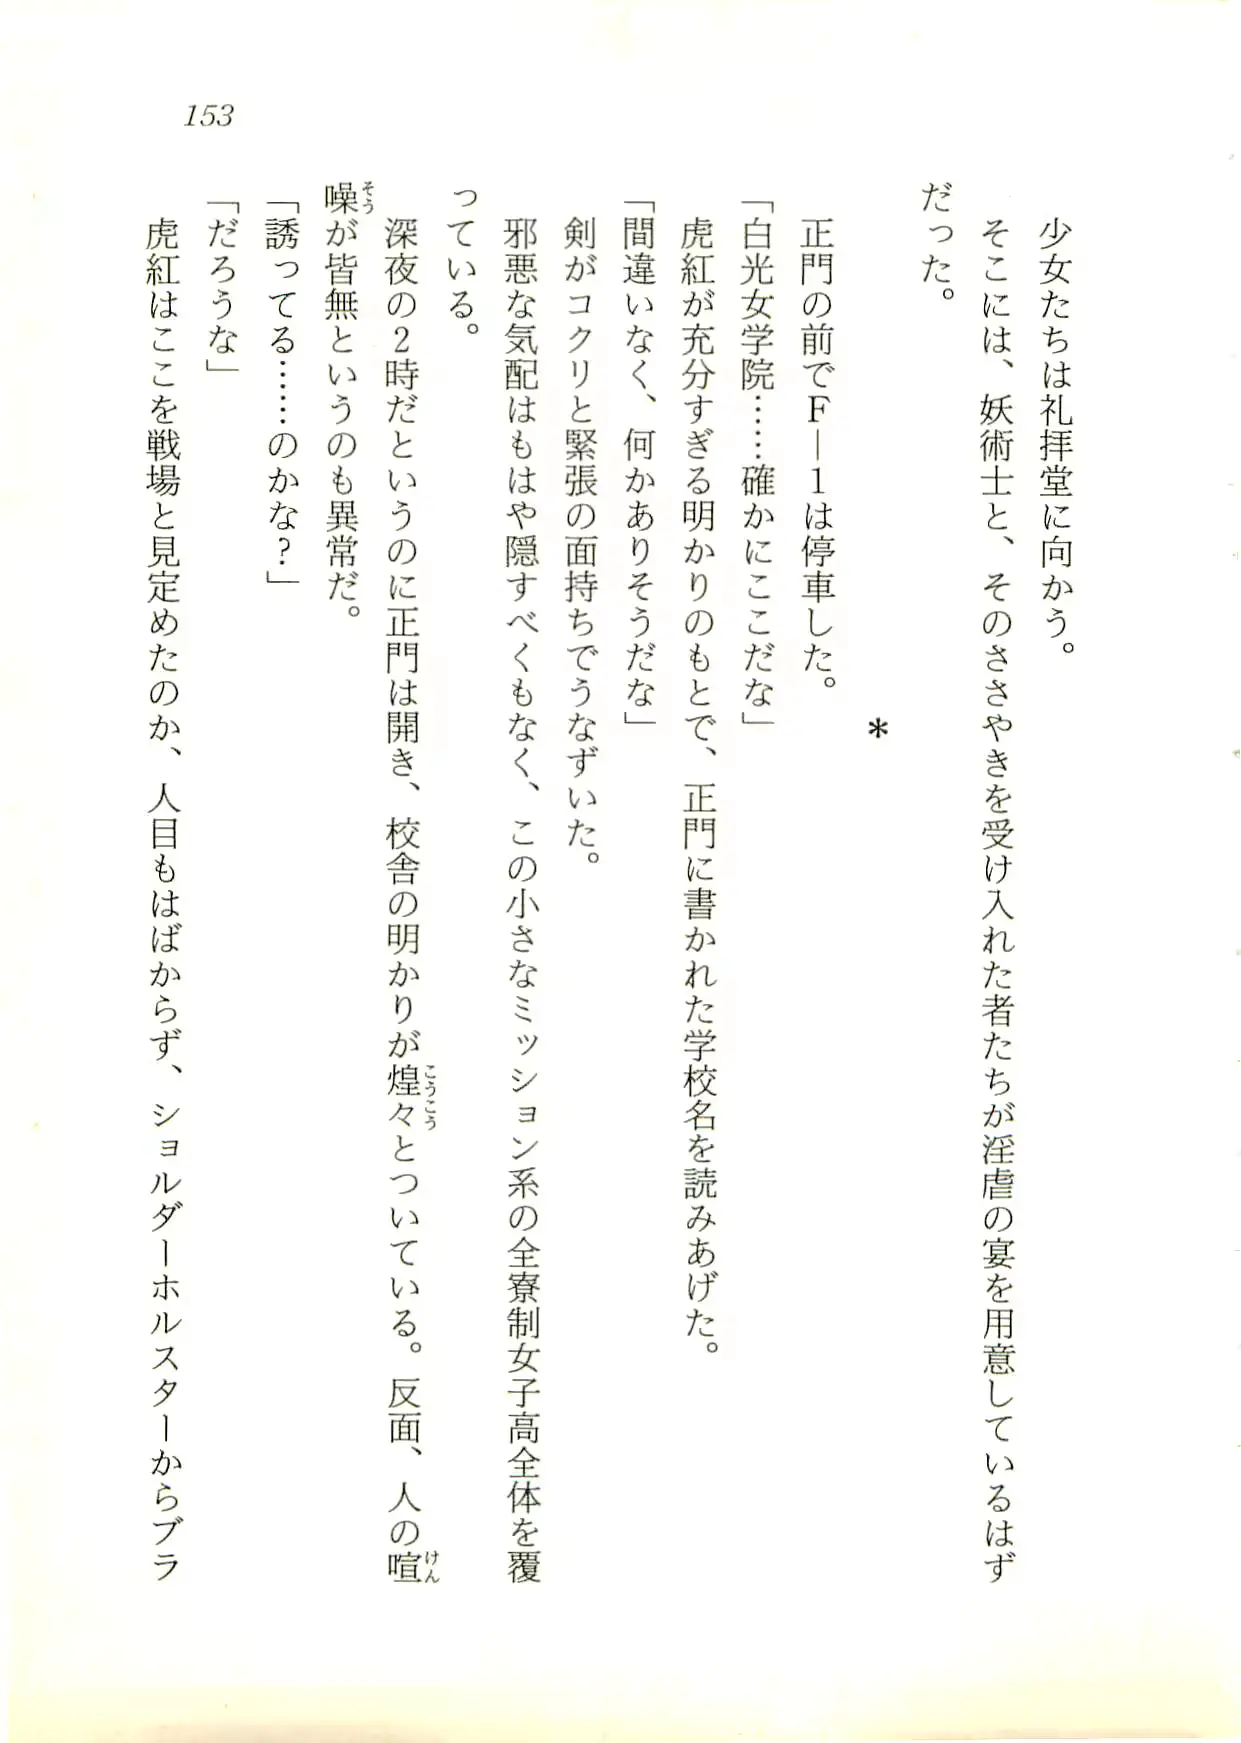 153
少女たちは礼拝堂に向かう。
そこには、妖術士と、そのささやきを受け入れた者たちが淫虐の宴を用意しているはず
だった。
*
正門の前でF—1は停車した。
「白光女学院……確かにここだな」
虎紅が充分すぎる明かりのもとで、正門に書かれた学校名を読みあげた。
「間違いなく、何かありそうだな」
剣がコクリと緊張の面持ちでうなずいた。
邪悪な気配はもはや隠すべくもなく、この小さなミッション系の全寮制女子高全体を覆
っている。
深夜の2時だというのに正門は開き、校舎の明かりが煌々とついている。反面、人の喧
噪が皆無というのも異常だ。
「誘ってる……のかな?」
「だろうな」
虎紅はここを戦場と見定めたのか、人目もはばからず、ショルダーホルスターからブラ